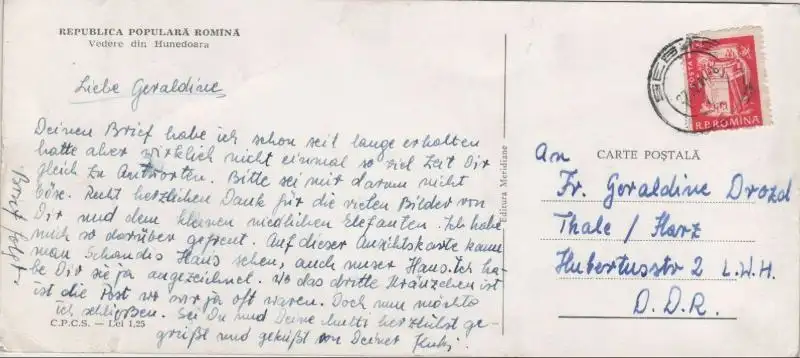 REPUBLICA POPULARĂ ROMÎNĂ
Vedere din Hunedoara
Liebe Geraldine,
Deinen Brief habe ich schon seit lange erhalten
hatte aber wirklich nicht einmal so viel Zeit Dir
gleich zu Antworten. Bitte sei mir darum nicht
böse. Recht herzlichen Dank für die vielen Bilder von
Dir und dem kleinen niedlichen Elefanten. Ich habe
mich so darüber gefreut. Auf dieser Ansichtskarte kann
man Schandis Haus sehen, auch unser Haus. Ich ha-
be Dir sie ja angezeichnet. Wo das dritte Kränzchen ist
ist die Post wo wir ja oft waren. Doch nun möchte
ich schließen. Sei Du und Deine Mutti herzlichst ge-
grüßt und geküßt von Deiner
Brief folgt
C.P.C.S. — Lei 1,25
Editura Meridiane
POSTA
R.P. ROMINA
CARTE POȘTALĂ
An
Fr. Geraldine Drozd
Thale / Harz
Hubertusstr 2 L.W.H.
D.D.R.